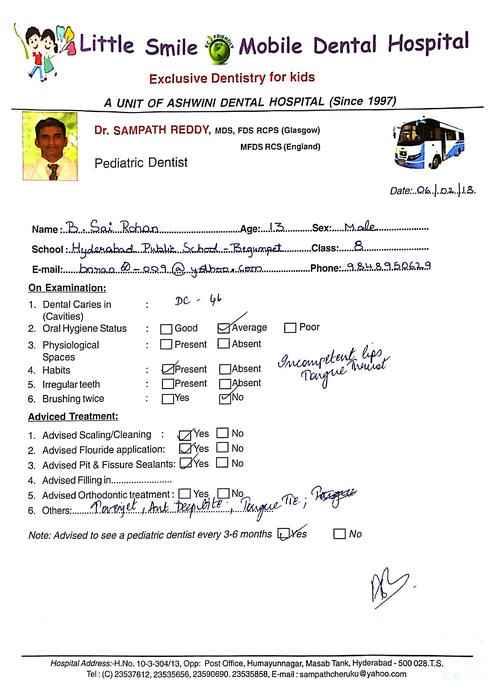 Little Smile Mobile Dental Hospital
Exclusive Dentistry for kids
A UNIT OF ASHWINI DENTAL HOSPITAL (Since 1997)
Dr. SAMPATH REDDY, MDS, FDS RCPS (Glasgow)
MFDS RCS (England)
Pediatric Dentist
Date: 06/02/18.
Name: B. Sai Rohan Age: 13 Sex: Male
School: Hyderabad Public School - Begumpet Class: 8
E-mail: @yahoo.com Phone: 9848950629
On Examination:
1. Dental Caries in : DC - 46
(Cavities)
2. Oral Hygiene Status : Good Average Poor
3. Physiological : Present Absent
Spaces
4. Habits : Present Absent
Incompetent lips
Tongue thrust
5. Irregular teeth : Present Absent
6. Brushing twice : Yes No
Adviced Treatment:
1. Advised Scaling/Cleaning : Yes No
2. Advised Flouride application: Yes No
3. Advised Pit & Fissure Sealants: Yes No
4. Advised Filling in....................
5. Advised Orthodontic treatment : Yes No
6. Others: Ant Deepbite, Tongue Tie;
Note: Advised to see a pediatric dentist every 3-6 months Yes No
Hospital Address:-H.No. 10-3-304/13, Opp: Post Office, Humayunnagar, Masab Tank, Hyderabad - 500 028.T.S.
Tel : (C) 23537612, 23535656, 23590690. 23535858, E-mail : sampathcheruku@yahoo.com